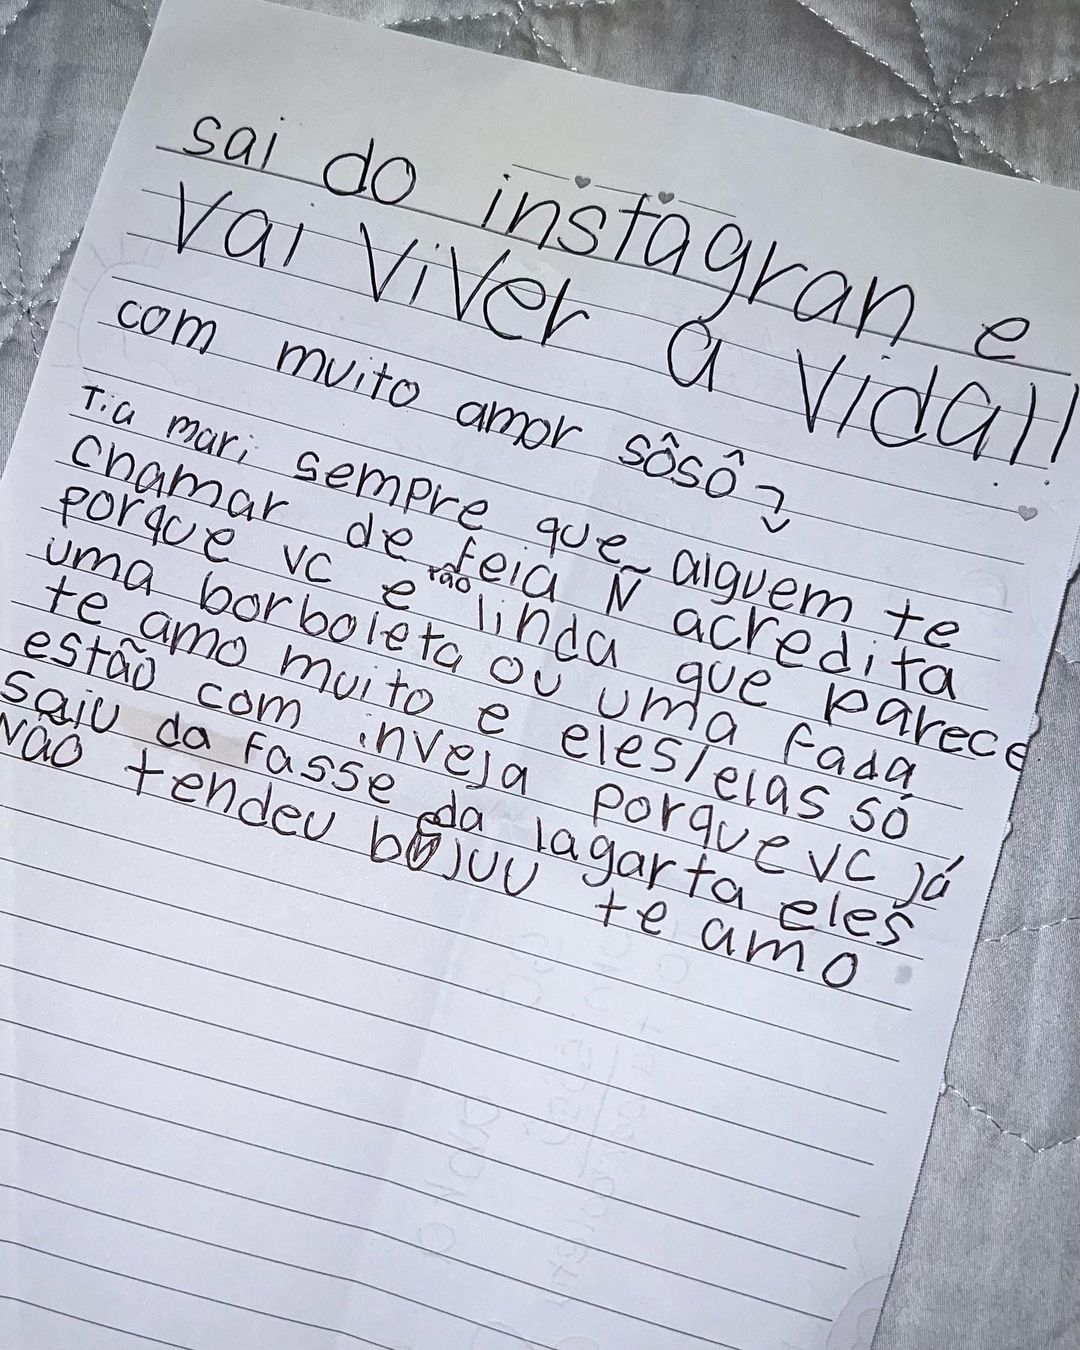 sai do instagran e
Vai Viver a Vida!!
com muito amor sôsô
Tia mari sempre que alguem te
chamar de feia Ñ acredita
porque vc e tão linda que parece
uma borboleta ou uma fada
te amo muito e eles/elas só
estão com inveja porque vc já
saiu da fasse da lagarta eles
Não tendeu bejuu te amo